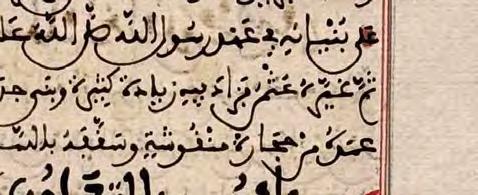 على بنيانه في عهد رسول الله صلى الله عل
ثم غيره عثمن فزاد فيه زيادة كثيرة وبنى جد
عمده من حجارة منقوشة وسقفه بالس